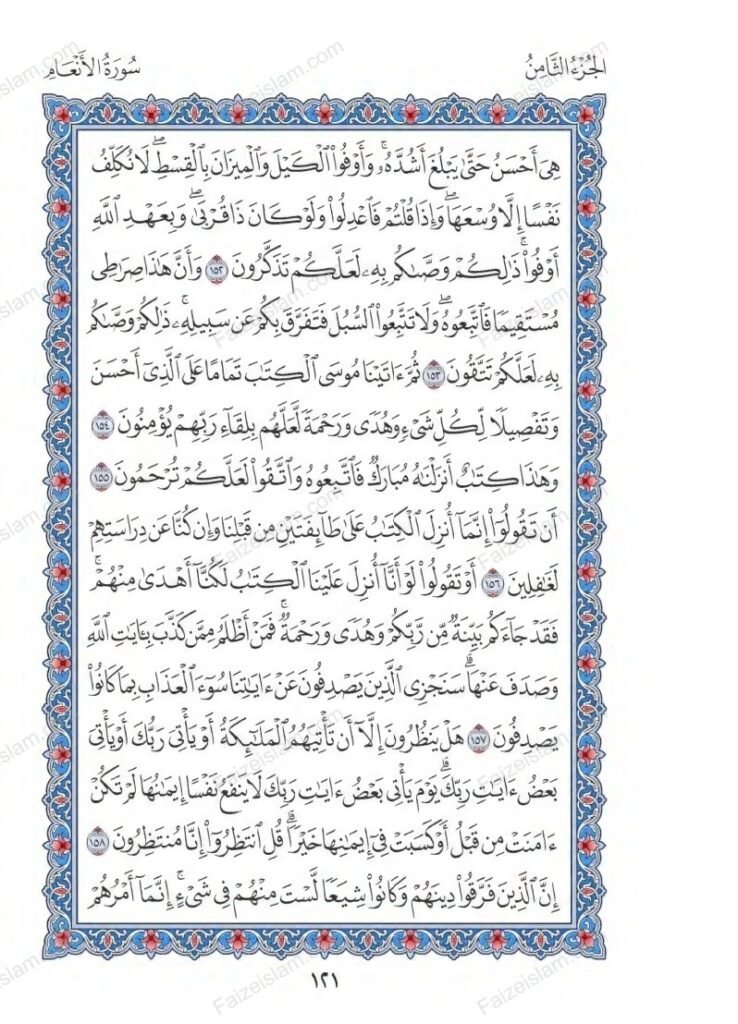 الجُزْءُ الثَّامِنُ
سُورَةُ الأَنْعَامِ
هِيَ أَحْسَنُ حَتَّىٰ يَبْلُغَ أَشُدَّهُۥۚ وَأَوْفُوا۟ ٱلْكَيْلَ وَٱلْمِيزَانَ بِٱلْقِسْطِۖ لَا نُكَلِّفُ
نَفْسًا إِلَّا وُسْعَهَاۖ وَإِذَا قُلْتُمْ فَٱعْدِلُوا۟ وَلَوْ كَانَ ذَا قُرْبَىٰۖ وَبِعَهْدِ ٱللَّهِ
أَوْفُوا۟ۚ ذَٰلِكُمْ وَصَّىٰكُم بِهِۦ لَعَلَّكُمْ تَذَكَّرُونَ ١٥٢ وَأَنَّ هَٰذَا صِرَٰطِى
مُسْتَقِيمًا فَٱتَّبِعُوهُۖ وَلَا تَتَّبِعُوا۟ ٱلسُّبُلَ فَتَفَرَّقَ بِكُمْ عَن سَبِيلِهِۦۚ ذَٰلِكُمْ وَصَّىٰكُم
بِهِۦ لَعَلَّكُمْ تَتَّقُونَ ١٥٣ ثُمَّ ءَاتَيْنَا مُوسَى ٱلْكِتَٰبَ تَمَامًا عَلَى ٱلَّذِىٓ أَحْسَنَ
وَتَفْصِيلًا لِّكُلِّ شَىْءٍ وَهُدًى وَرَحْمَةً لَّعَلَّهُم بِلِقَآءِ رَبِّهِمْ يُؤْمِنُونَ ١٥٤
وَهَٰذَا كِتَٰبٌ أَنزَلْنَٰهُ مُبَارَكٌ فَٱتَّبِعُوهُ وَٱتَّقُوا۟ لَعَلَّكُمْ تُرْحَمُونَ ١٥٥
أَن تَقُولُوٓا۟ إِنَّمَآ أُنزِلَ ٱلْكِتَٰبُ عَلَىٰ طَآئِفَتَيْنِ مِن قَبْلِنَا وَإِن كُنَّا عَن دِرَاسَتِهِمْ
لَغَٰفِلِينَ ١٥٦ أَوْ تَقُولُوا۟ لَوْ أَنَّآ أُنزِلَ عَلَيْنَا ٱلْكِتَٰبُ لَكُنَّآ أَهْدَىٰ مِنْهُمْۚ
فَقَدْ جَآءَكُم بَيِّنَةٌ مِّن رَّبِّكُمْ وَهُدًى وَرَحْمَةٌۚ فَمَنْ أَظْلَمُ مِمَّن كَذَّبَ بِـَٔايَٰتِ ٱللَّهِ
وَصَدَفَ عَنْهَاۗ سَنَجْزِى ٱلَّذِينَ يَصْدِفُونَ عَنْ ءَايَٰتِنَا سُوٓءَ ٱلْعَذَابِ بِمَا كَانُوا۟
يَصْدِفُونَ ١٥٧ هَلْ يَنظُرُونَ إِلَّآ أَن تَأْتِيَهُمُ ٱلْمَلَٰٓئِكَةُ أَوْ يَأْتِىَ رَبُّكَ أَوْ يَأْتِىَ
بَعْضُ ءَايَٰتِ رَبِّكَۗ يَوْمَ يَأْتِى بَعْضُ ءَايَٰتِ رَبِّكَ لَا يَنفَعُ نَفْسًا إِيمَٰنُهَا لَمْ تَكُنْ
ءَامَنَتْ مِن قَبْلُ أَوْ كَسَبَتْ فِىٓ إِيمَٰنِهَا خَيْرًاۗ قُلِ ٱنتَظِرُوٓا۟ إِنَّا مُنتَظِرُونَ ١٥٨
إِنَّ ٱلَّذِينَ فَرَّقُوا۟ دِينَهُمْ وَكَانُوا۟ شِيَعًا لَّسْتَ مِنْهُمْ فِى شَىْءٍۚ إِنَّمَآ أَمْرُهُمْ
١٢١
Faizeislam.com